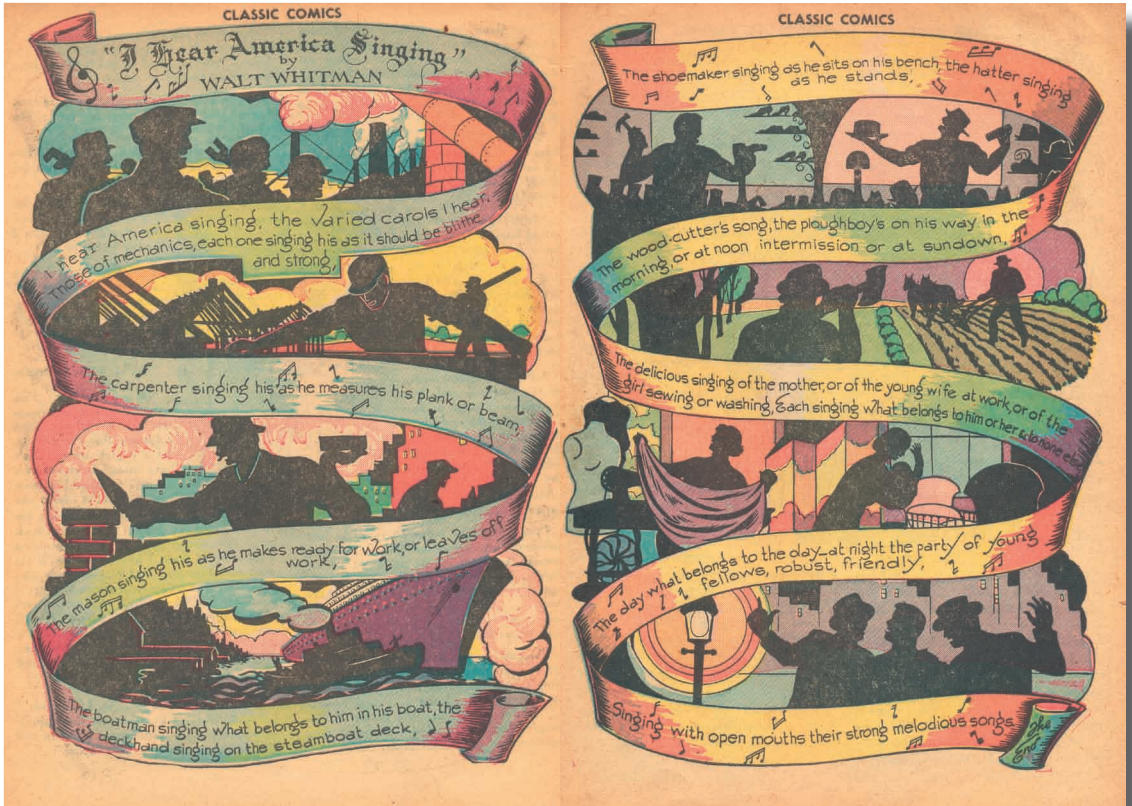 CLASSIC COMICS
"I Hear America Singing"
by
WALT WHITMAN
I hear America singing, the varied carols I hear.
Those of mechanics, each one singing his as it should be blithe
and strong,
The carpenter singing his as he measures his plank or beam,
The mason singing his as he makes ready for work, or leaves off
work,
The boatman singing what belongs to him in his boat, the
deckhand singing on the steamboat deck,
CLASSIC COMICS
The shoemaker singing as he sits on his bench, the hatter singing
as he stands,
The wood-cutter's song, the ploughboy's on his way in the
morning, or at noon intermission or at sundown,
The delicious singing of the mother, or of the young wife at work, or of the
girl sewing or washing, Each singing what belongs to him or her & to none else
The day what belongs to the day—at night the party of young
fellows, robust, friendly,
Singing with open mouths their strong melodious songs
The
End